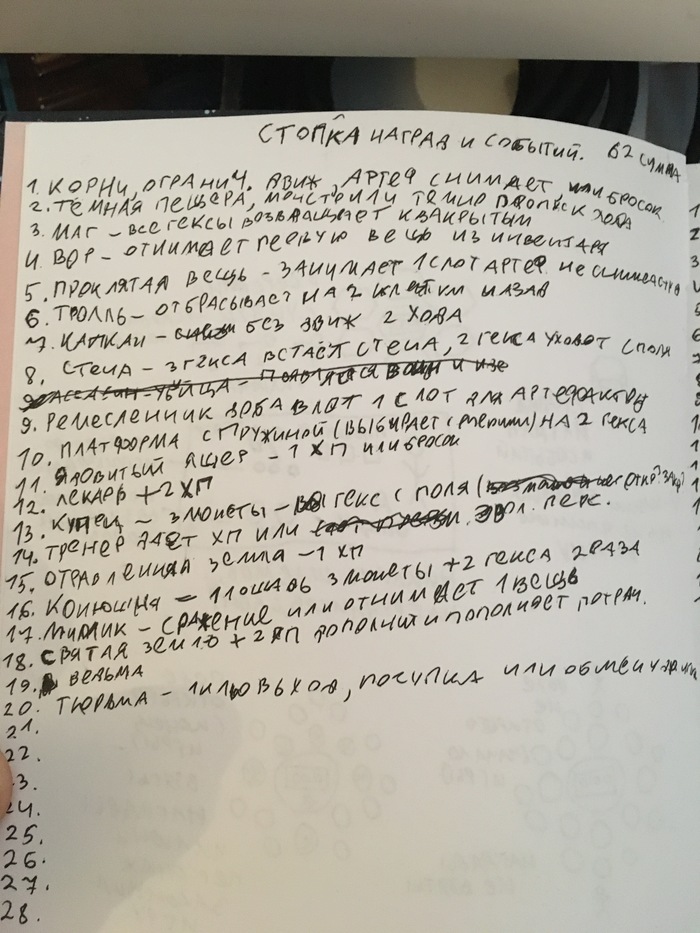 СТОПКА НАГРАД И СОБЫТИЙ. 62 СУММА
1. КОРНИ, ОГРАНИЧ. ДВИЖ, АРТЕФ СНИМАЕТ ИЛИ БРОСОК
2. ТЕМНАЯ ПЕЩЕРА, МОНСТР ИЛИ ТЕМНО ПРОПУСК ХОДА
3. МАГ – ВСЕ ГЕКСЫ ВОЗВРАЩАЕТ К ЗАКРЫТЫМ
4. ВОР – ОТНИМАЕТ ПЕРВУЮ ВЕЩЬ ИЗ ИНВЕНТАРЯ
5. ПРОКЛЯТАЯ ВЕЩЬ – ЗАНИМАЕТ 1 СЛОТ АРТЕФ. НЕ СНИМАЕТСЯ
6. ТРОЛЛЬ – ОТБРАСЫВАЕТ НА 2 КЛЕТКИ НАЗАД
7. КАПКАН – БЕЗ ДВИЖ 2 ХОДА
8. СТЕНА – 3 ГЕКСА ВСТАЁТ СТЕНА, 2 ГЕКСА УХОДЯТ С ПОЛЯ
9. РЕМЕСЛЕННИК ДОБАВЛЯТ 1 СЛОТ ДЛЯ АРТЕФАКТОВ
10. ПЛАТФОРМА С ПРУЖИНОЙ (ВЫБИРАЕТ) НА 2 ГЕКСА
11. ЯДОВИТЫЙ ЯЩЕР – 1 ХП ИЛИ БРОСОК
12. ЛЕКАРЬ +2 ХП
13. КУПЕЦ – 3 МОНЕТЫ – ГЕКС С ПОЛЯ (ОТКР? ЗАКР)
14. ТРЕНЕР ДАЕТ ХП ИЛИ ДОП. ПЕРС.
15. ОТРАВЛЕННАЯ ЗЕМЛЯ – 1 ХП
16. КОНЮШНЯ – 1 ЛОШАДЬ 3 МОНЕТЫ +2 ГЕКСА 2 РАЗА
17. МИМИК – СРАЖЕНИЕ ИЛИ ОТНИМАЕТ 1 ВЕЩЬ
18. СВЯТАЯ ЗЕМЛЯ +2 ХП И ПОПОЛНЯЕТ
19. ВЕДЬМА
20. ТЮРЬМА – ВЫХОД, ПОКУПКА ИЛИ ОБМЕН
21.
22.
3.
24.
25.
26.
27.
28.